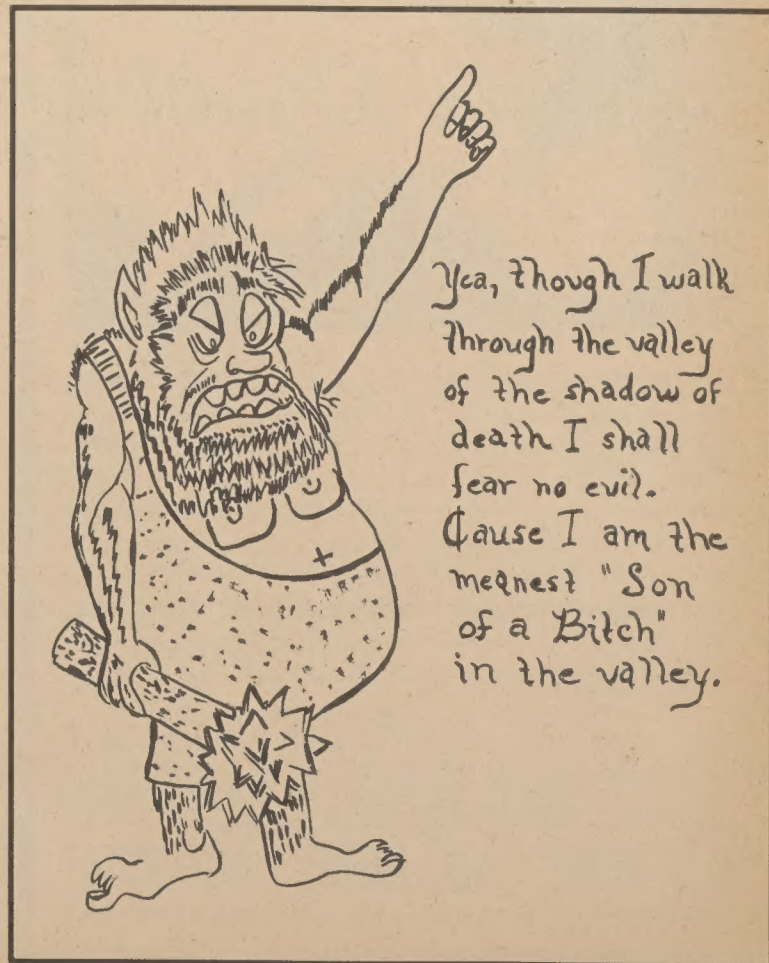 Yea, though I walk
through the valley
of the shadow of
death I shall
fear no evil.
Cause I am the
meanest "Son
of a Bitch"
in the valley.